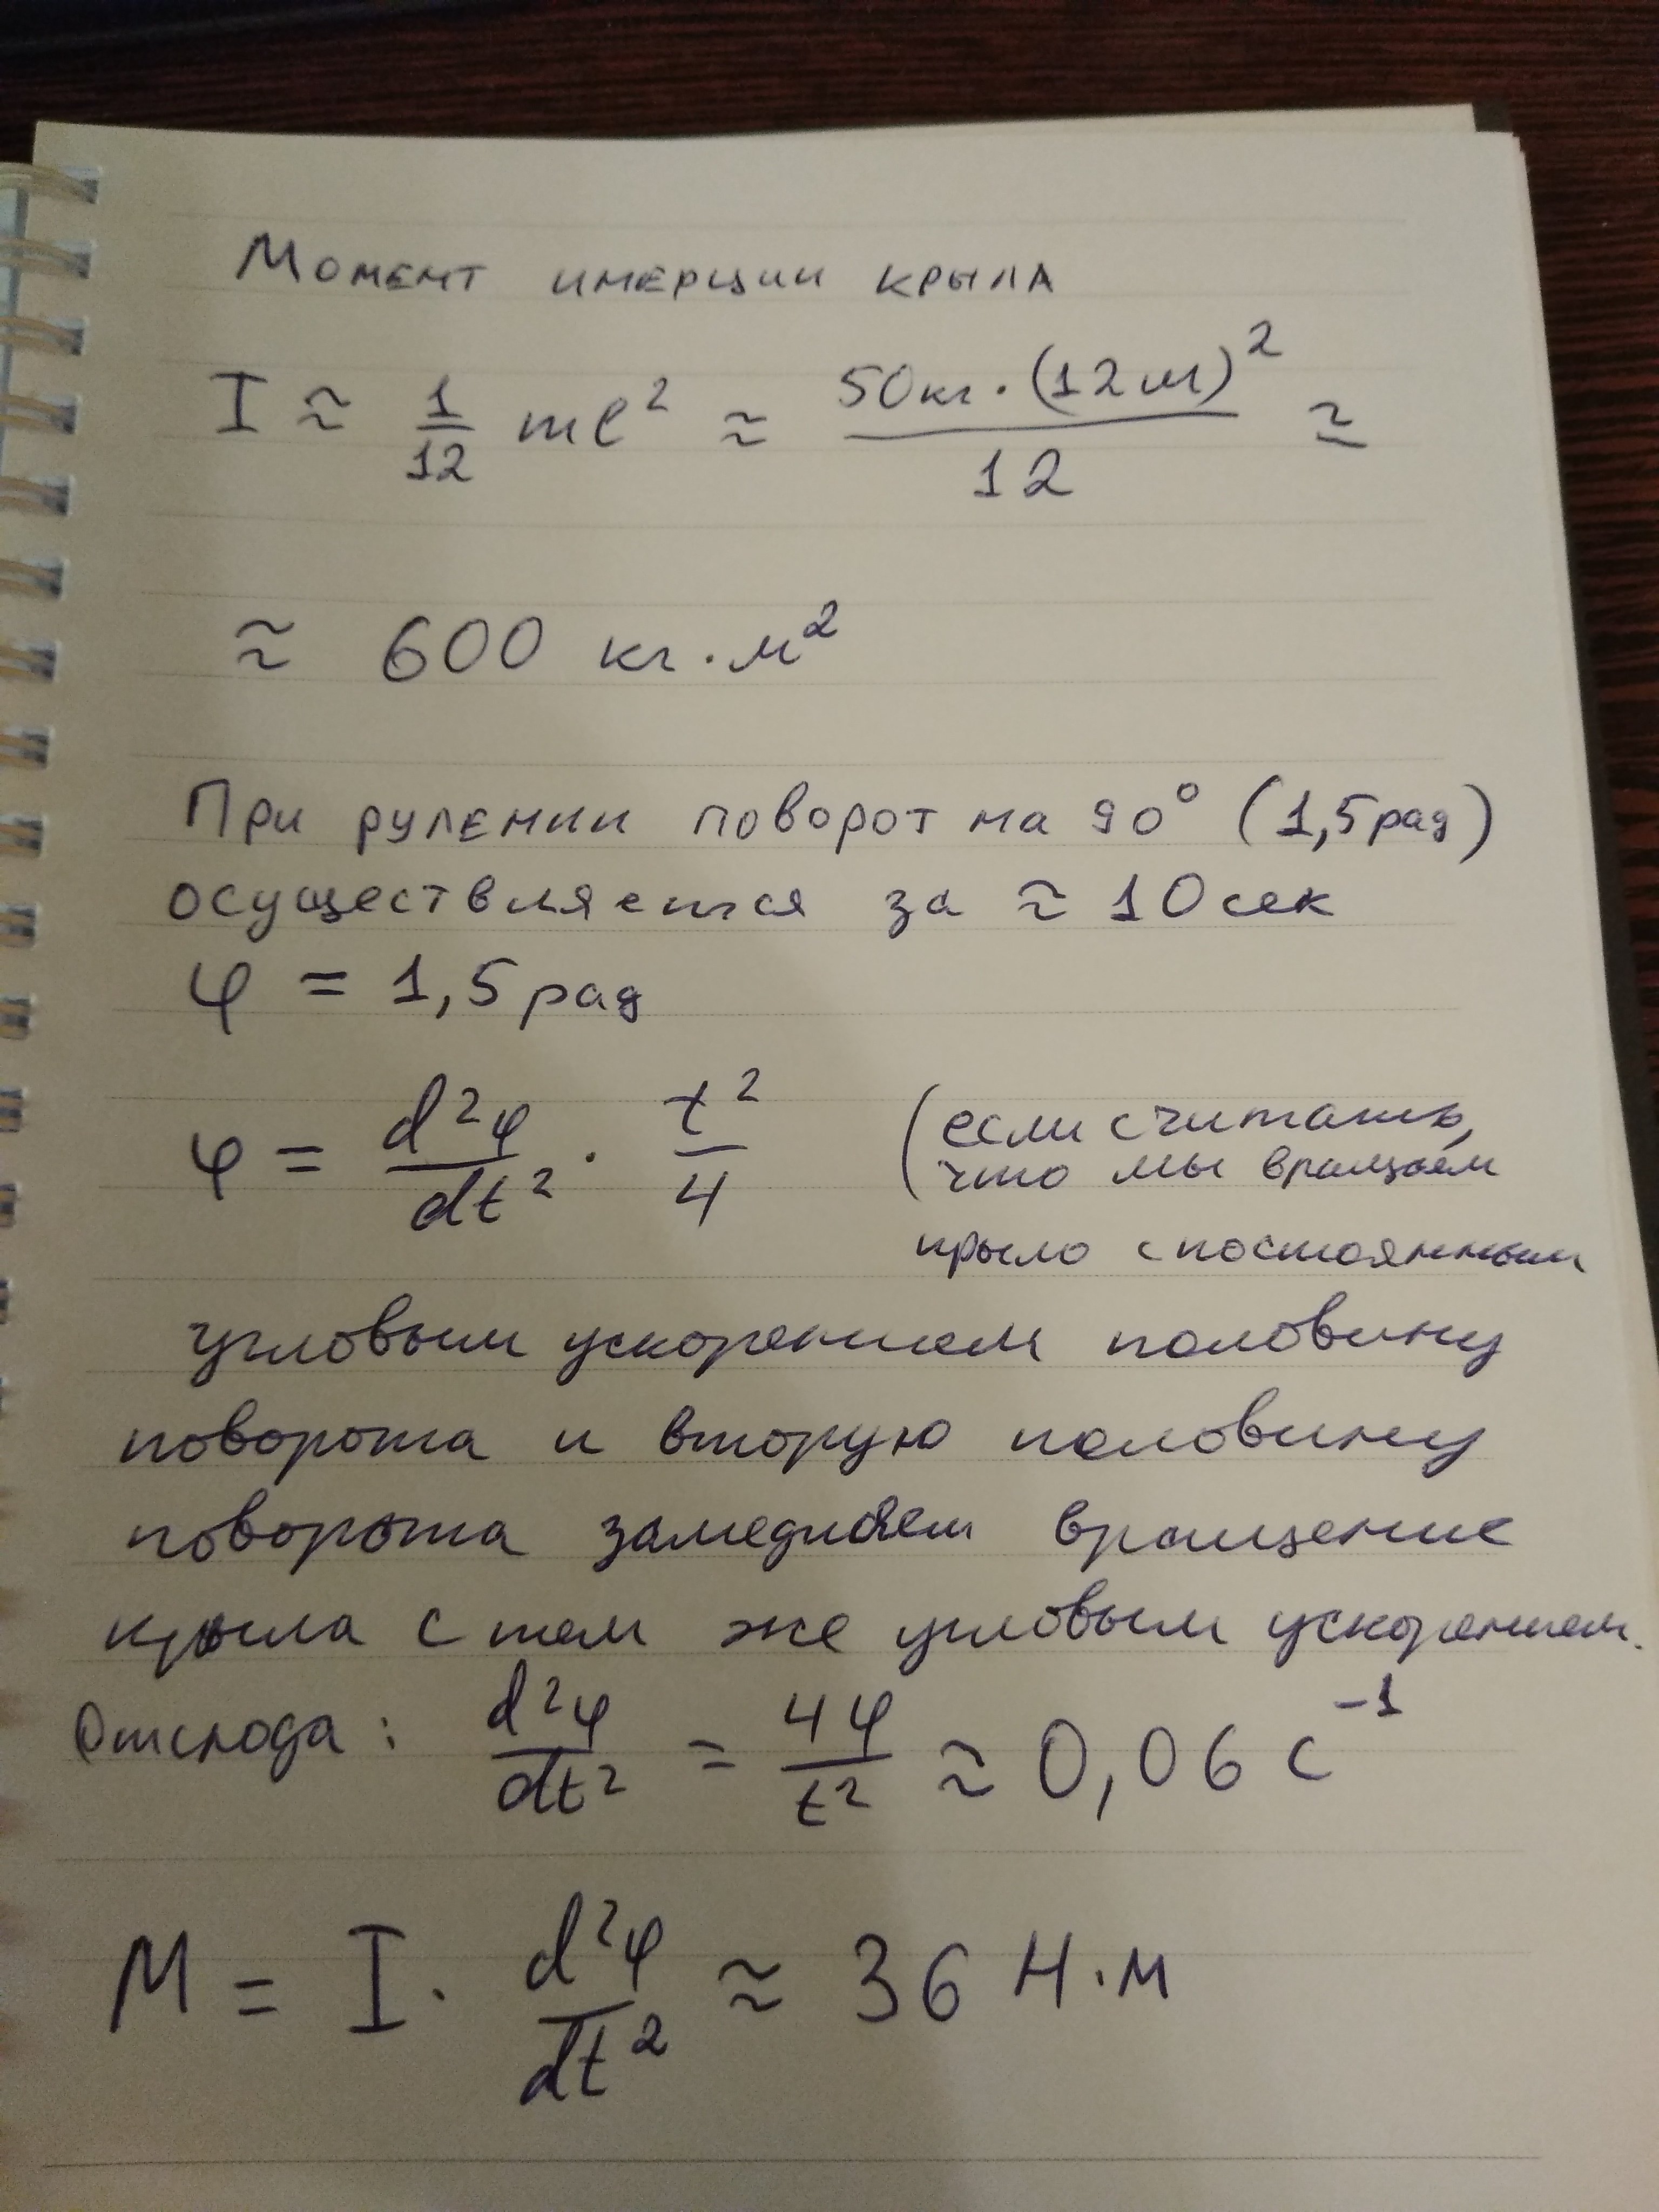 Момент инерции крыла
I ≈ 1/12 ml² ≈ 50кг·(12м)²/12 ≈
≈ 600 кг·м²
При рулении поворот на 90° (1,5рад)
осуществляется за ≈ 10сек
φ = 1,5рад
φ = d²φ/dt² · t²/4 (если считать,
что мы вращаем
крыло с постоянным
угловым ускорением половину
поворота и вторую половину
поворота замедляем вращение
крыла с тем же угловым ускорением.
Отсюда: d²φ/dt² = 4φ/t² ≈ 0,06 с⁻¹
M = I · d²φ/dt² ≈ 36 Н·м